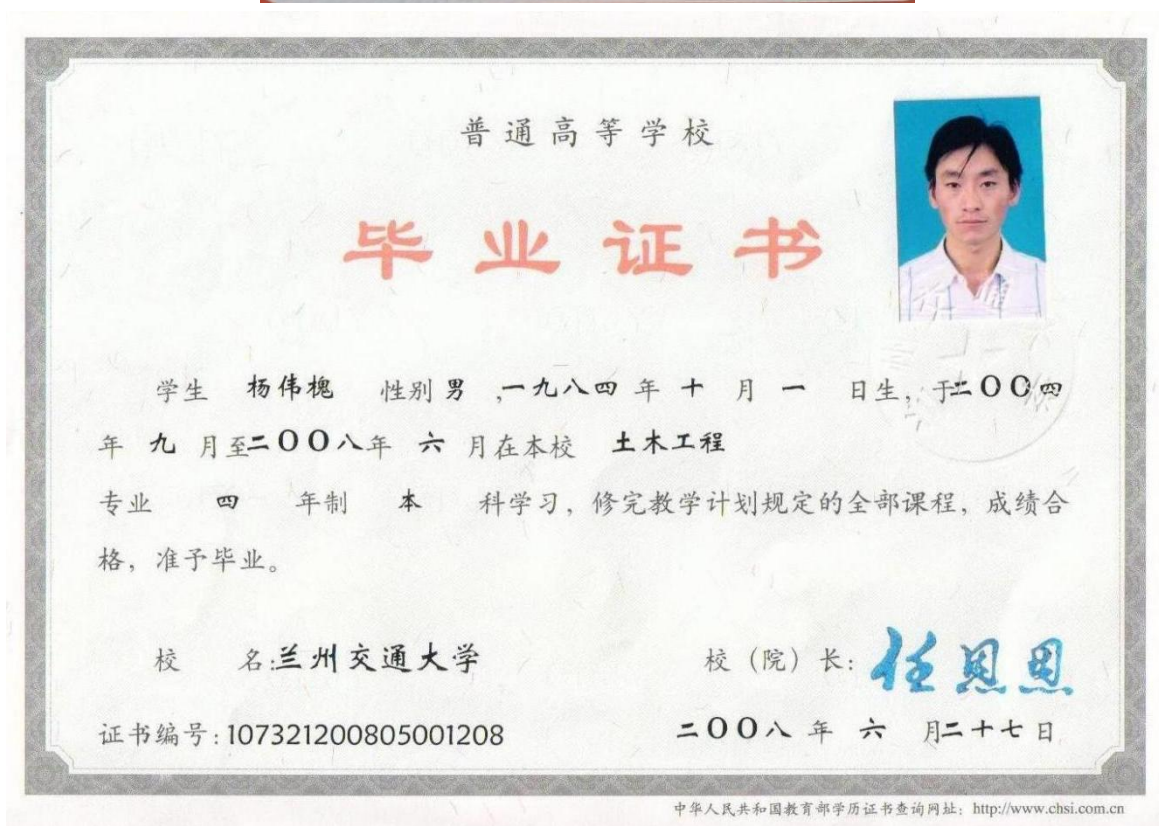 普通高等学校
毕业证书
学生 杨伟槐 性别 男 ,一九八四 年 十 月 一 日生，于二〇〇四
年 九 月至二〇〇八年 六 月在本校 土木工程
专业 四 年制 本 科学习，修完教学计划规定的全部课程，成绩合
格，准予毕业。
校 名:兰州交通大学 校（院）长: 任恩恩
证书编号:107321200805001208 二〇〇八 年 六 月二十七日
中华人民共和国教育部学历证书查询网址：http://www.chsi.com.cn